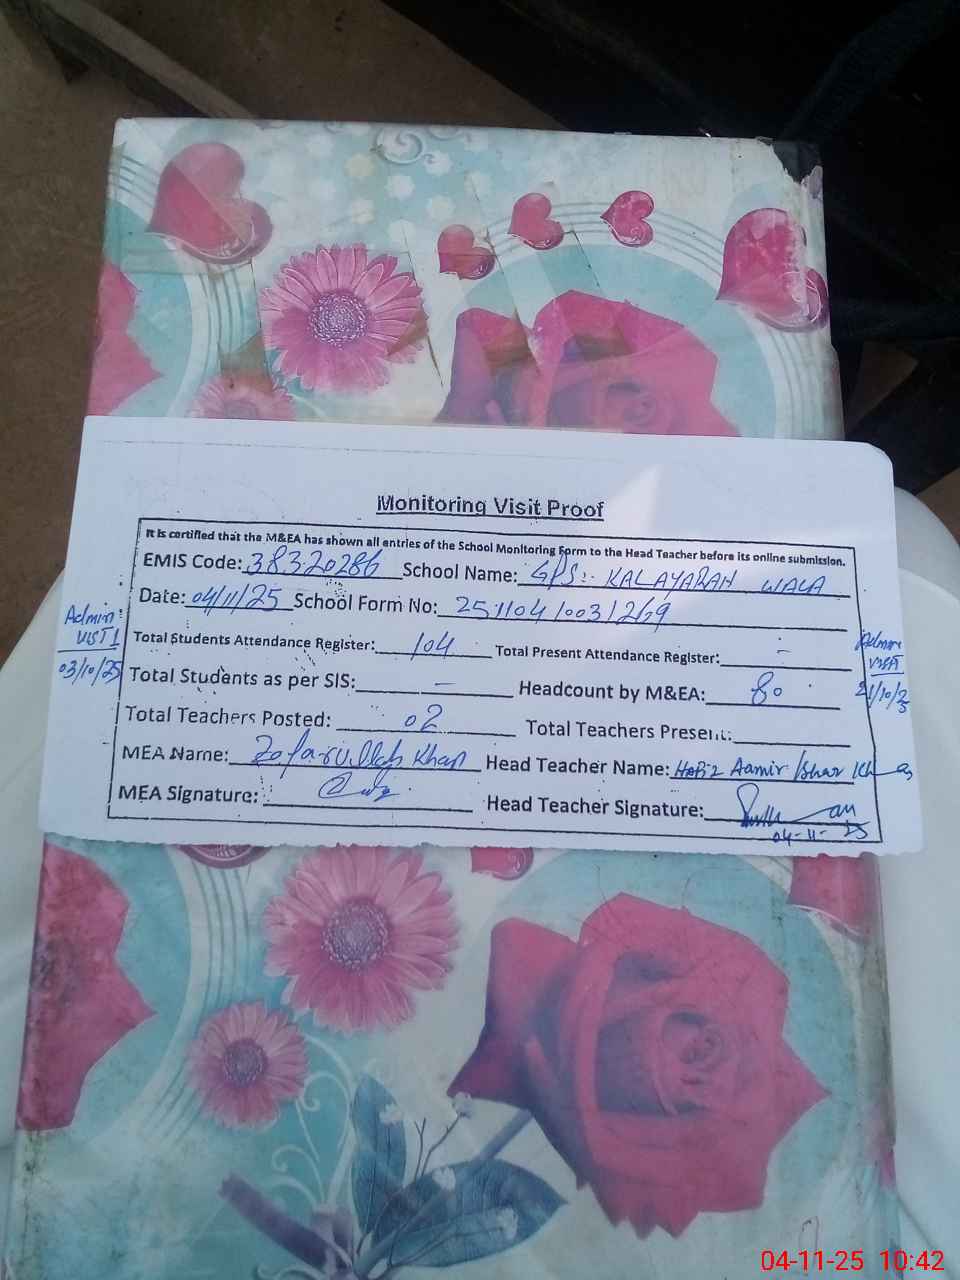 Monitoring Visit Proof
It is certified that the M&EA has shown all entries of the School Monitoring Form to the Head Teacher before its online submission.
EMIS Code: 38320286 School Name: GPS:- KALAYARAH WALA
Date: 04/11/25 School Form No: 25110410031269
Total Students Attendance Register: 104 Total Present Attendance Register: -
Total Students as per SIS: - Headcount by M&EA: 80
Total Teachers Posted: 02 Total Teachers Present:
MEA Name: Zafarullah Khan Head Teacher Name: Hafiz Aamir Izhar
MEA Signature: Head Teacher Signature:
04-11-25
Admin:
VISIT 1
03/10/25
Admin
visit
21/10/25
04-11-25 10:42